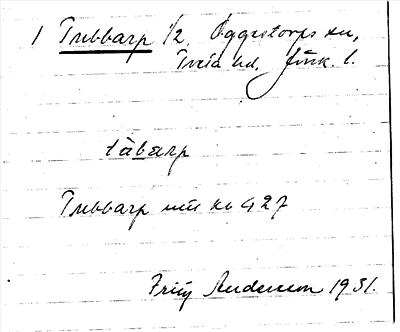 1 Tubbarp 1/2, Öggestorps sn,
Tveta hd, Jönk. l.
tùbarp
Tubbarp
427
Fritz Andersson 1931.